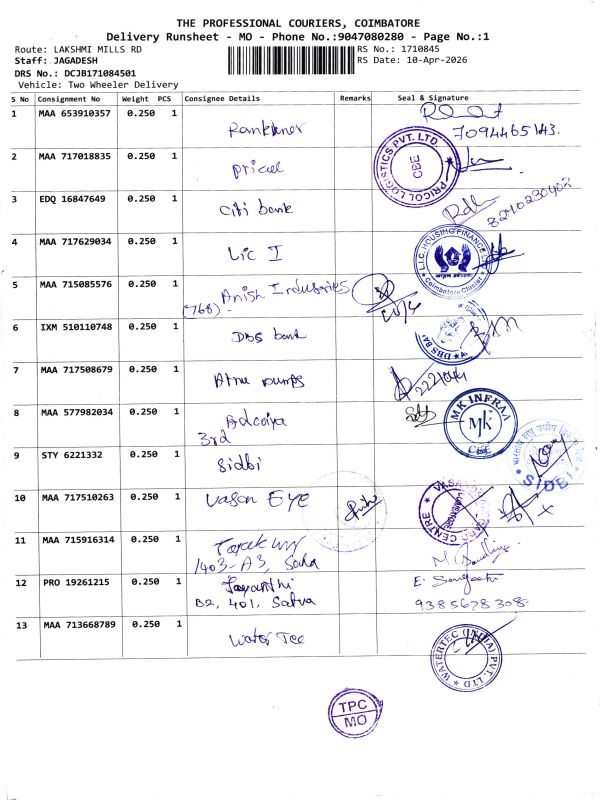 THE PROFESSIONAL COURIERS, COIMBATORE
Delivery Runsheet - MO - Phone No.:9047080280 - Page No.:1
Route: LAKSHMI MILLS RD
RS No.: 1710845
Staff: JAGADESH
RS Date: 10-Apr-2026
DRS No.: DCJB171084501
Vehicle: Two Wheeler Delivery
S No Consignment No Weight PCS Consignee Details Remarks Seal & Signature
1 MAA 653910357 0.250 1
7094465143.
2 MAA 717018835 0.250 1 pricol
PRICOL LOGISTICS PVT. LTD
CBE
3 EDQ 16847649 0.250 1 Citi bank
4 MAA 717629034 0.250 1 Lic I
L.I.C. HOUSING FINANCE
Coimbatore Cluster
5 MAA 715085576 0.250 1 Anish Industries
(768)
6 IXM 510110748 0.250 1 DBS bank
DBS BA
7 MAA 717508679 0.250 1 pumps
8 MAA 577982034 0.250 1
3rd
MK INFRAA
MK
CBE
9 STY 6221332 0.250 1 Sidbi
SIDBI
10 MAA 717510263 0.250 1 Vasan Eye
VASAN CARE CENTRE
11 MAA 715916314 0.250 1
1403-A3,
12 PRO 19261215 0.250 1 Jayanthi
B2, 401, Satva
E. Sangeetha
9385678308
13 MAA 713668789 0.250 1 Water Tec
WATERTEC (INDIA) PVT. LTD
TPC
MO